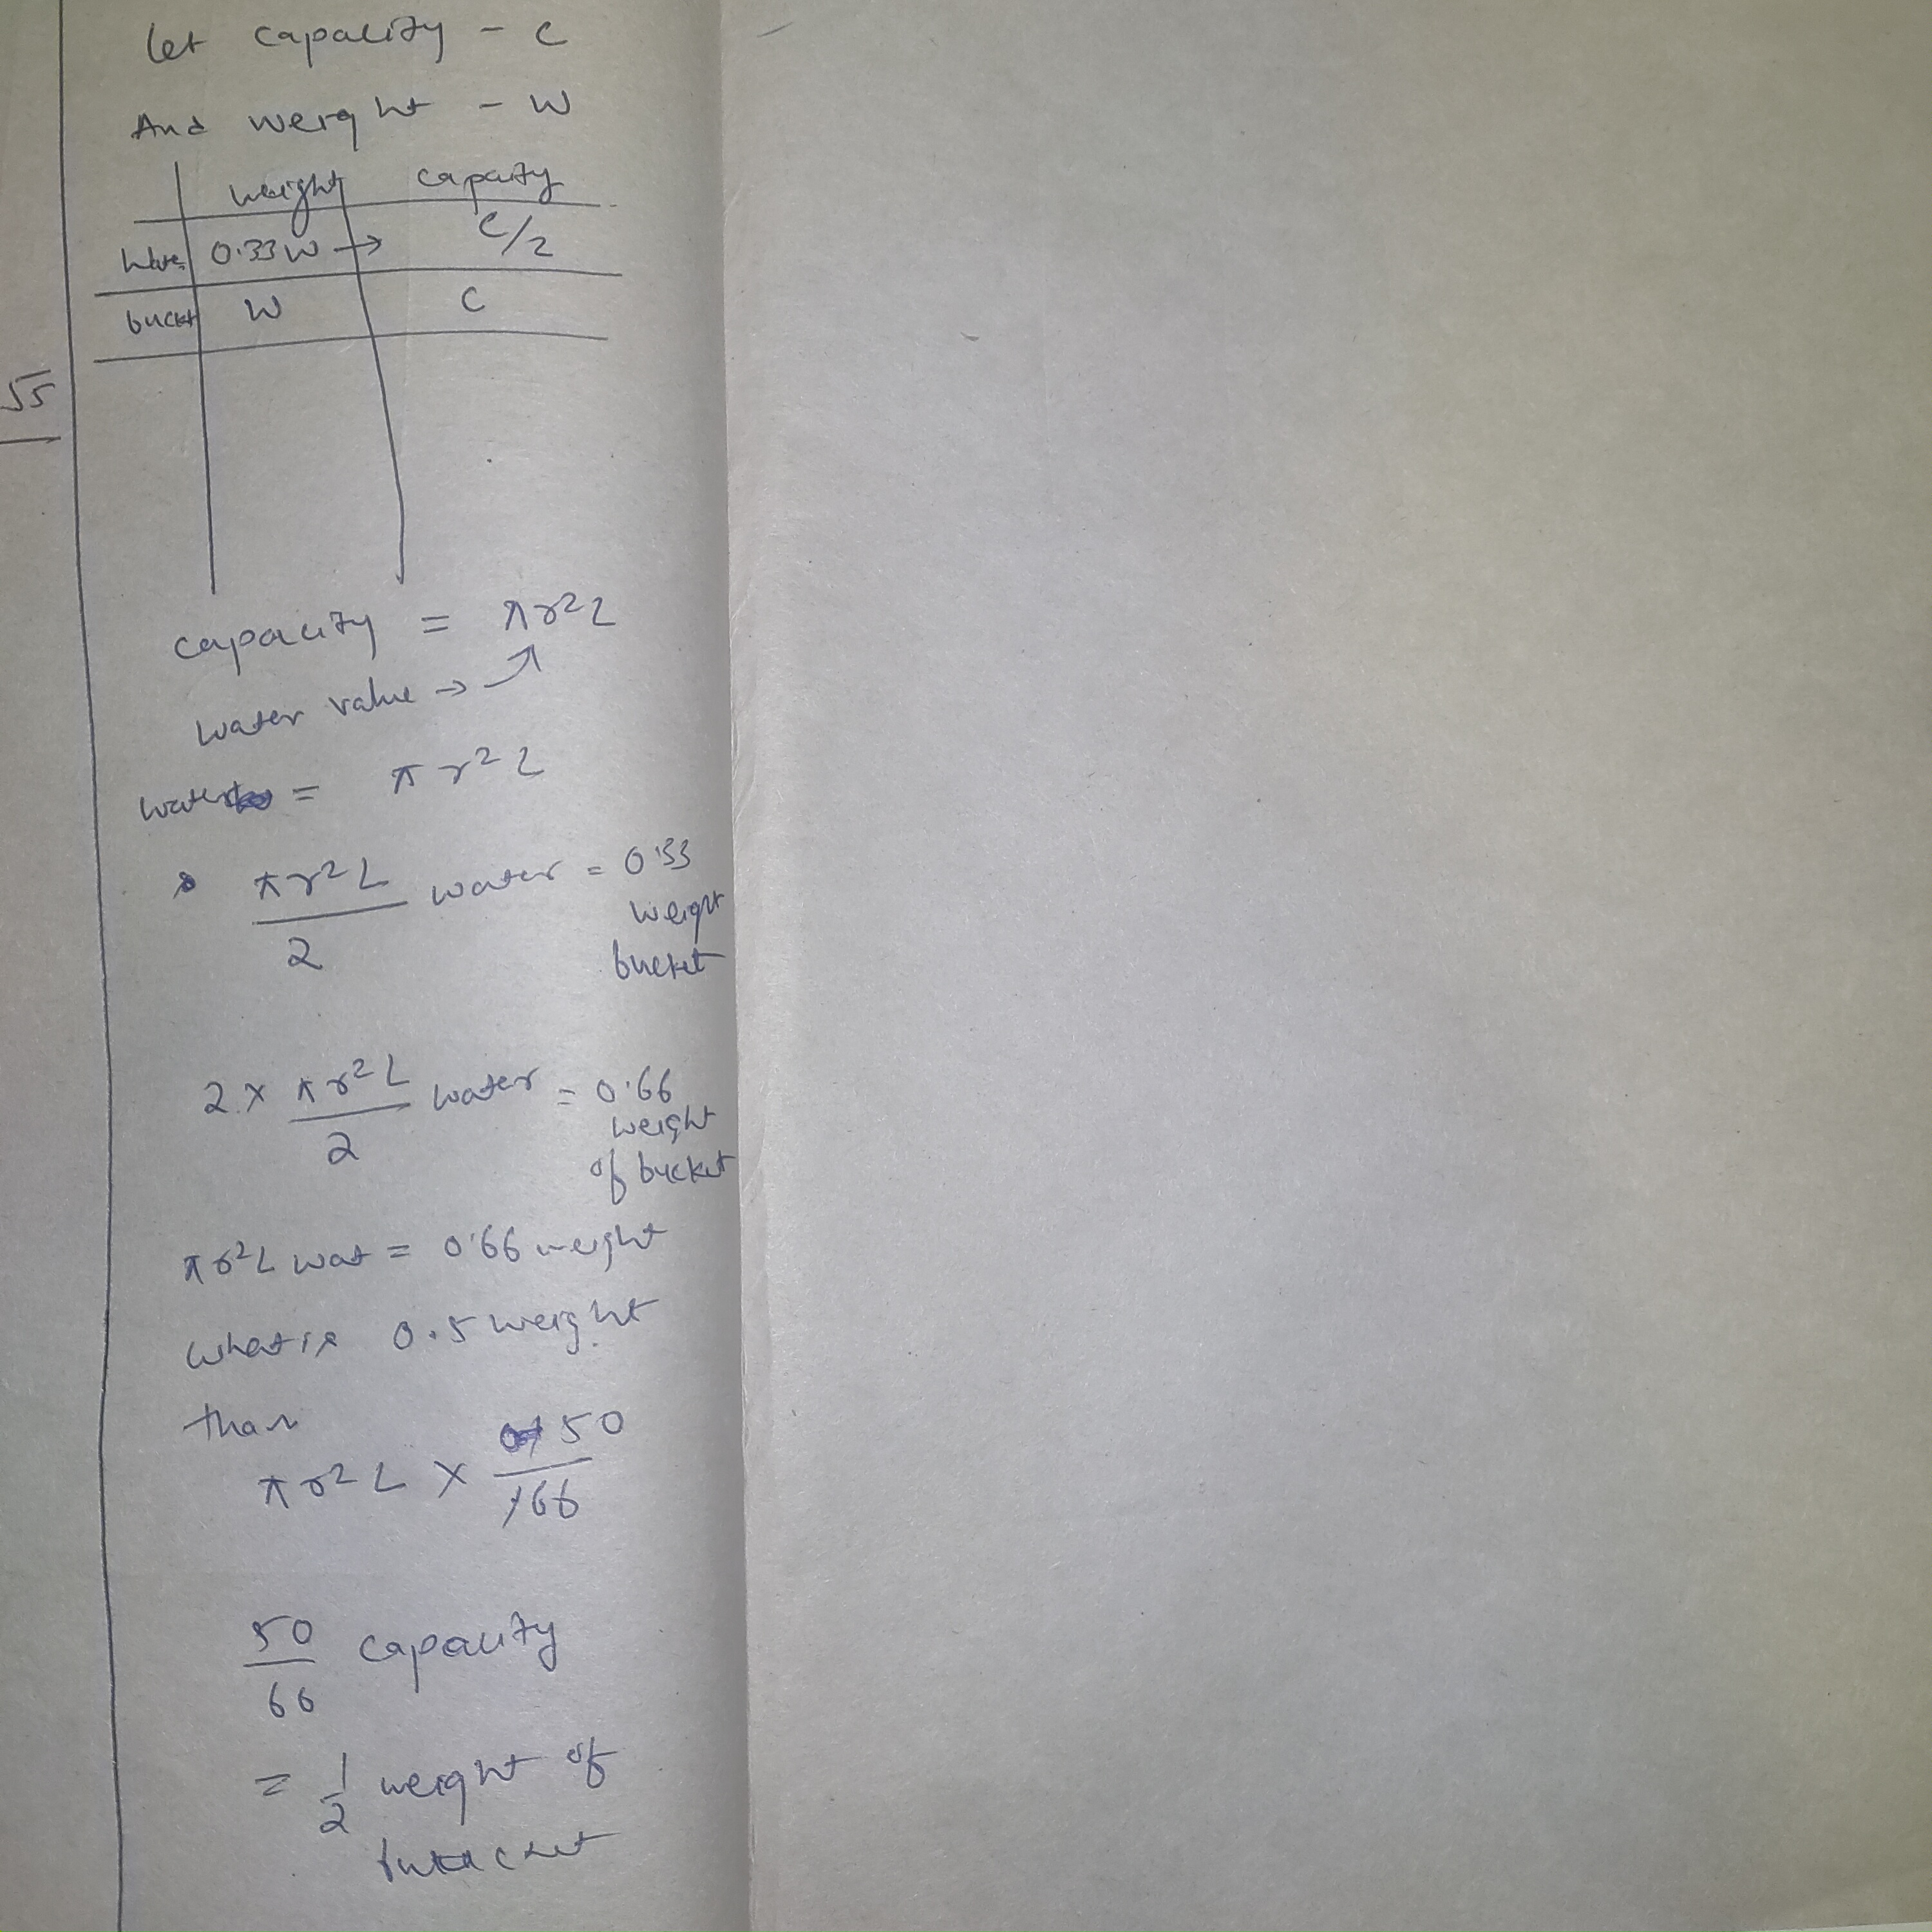 let capacity - c
And weight - W
weight capaity
Wate 0.33W → C/2
buckt W C
55
capacity = πr²L
water value →
water = πr²L
πr²L/2 water = 0.33
weight
bucket
2 x πr²L/2 water = 0.66
weight
of bucket
πr²L wat = 0.66 weight
what is 0.5 weight
than
πr²L x 50/66
50/66 capacity
= 1/2 weight of